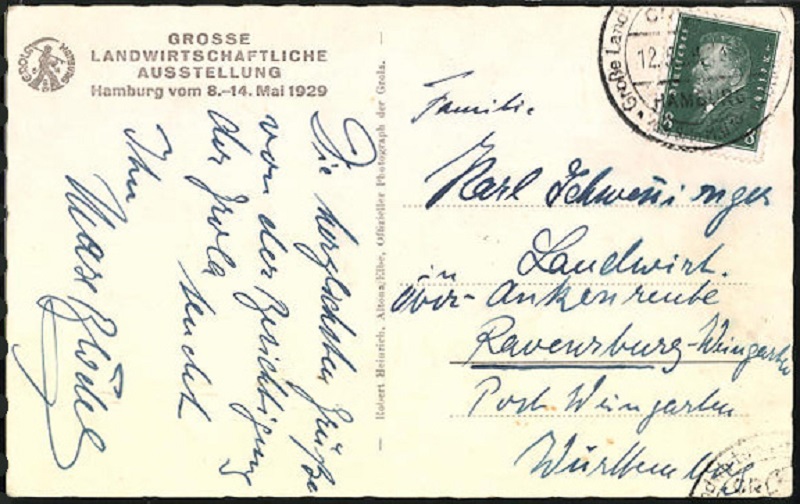 GROSSE
LANDWIRTSCHAFTLICHE
AUSSTELLUNG
Hamburg vom 8.-14. Mai 1929
Die herzlichsten Grüße
von der Besichtigung
der Grola sendet
Ihr
Max
Robert Heinrich, Altona/Elbe, Offizieller Photograph der Grola.
Große Land
12.5
HAMBURG
8 8
Familie
Karl Schweninger
Landwirt.
in
Ober-Ankenreute
Ravensburg-Weingarten
Post Weingarten
Württemberg